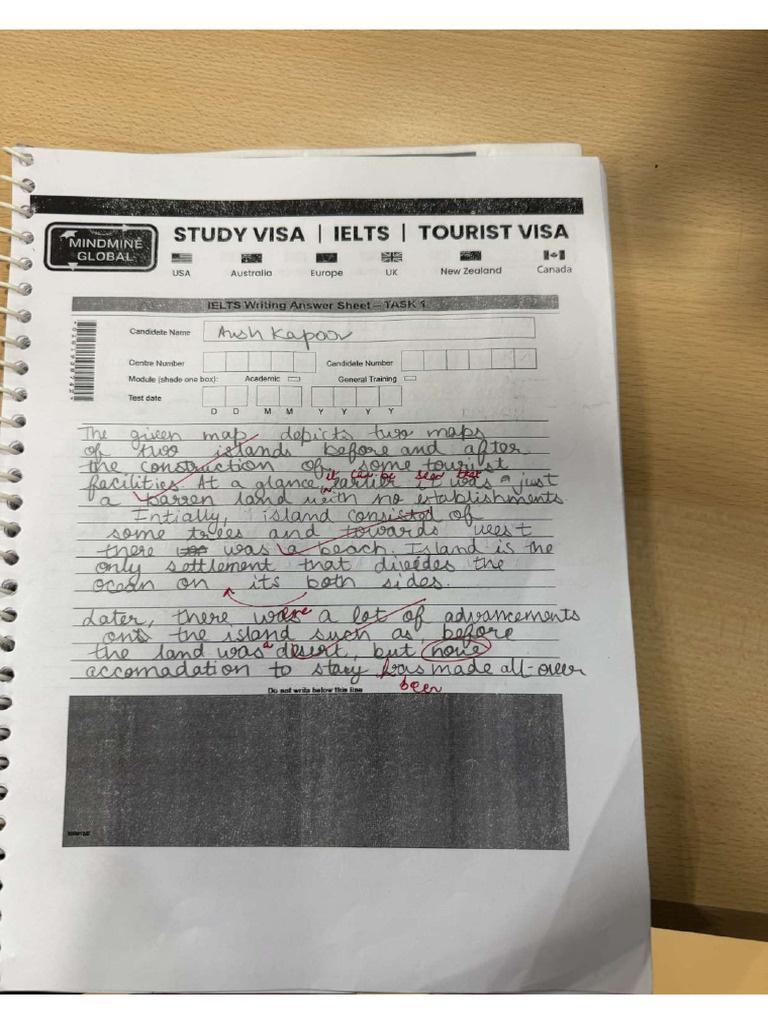 MINDMINE
GLOBAL
STUDY VISA | IELTS | TOURIST VISA
USA Australia Europe UK New Zealand Canada
IELTS Writing Answer Sheet – TASK 1
Candidate Name Ansh Kapoor
Centre Number Candidate Number
Module (shade one box): Academic General Training
Test date
D D M M Y Y Y Y
The given map depicts two maps
of two islands before and after
the construction of some tourist
it can be seen that
facilities. At a glance, earlier it was a just
a barren land with no establishments.
Intially, island consisted of
some trees and towards west
there was a beach. Island is the
only settlement that divides the
ocean on its both sides.
Later, there were a lot of advancements
onto the island such as, before
the land was a desert, but
accomadation to stay has made all-over
been
Do not write below this line